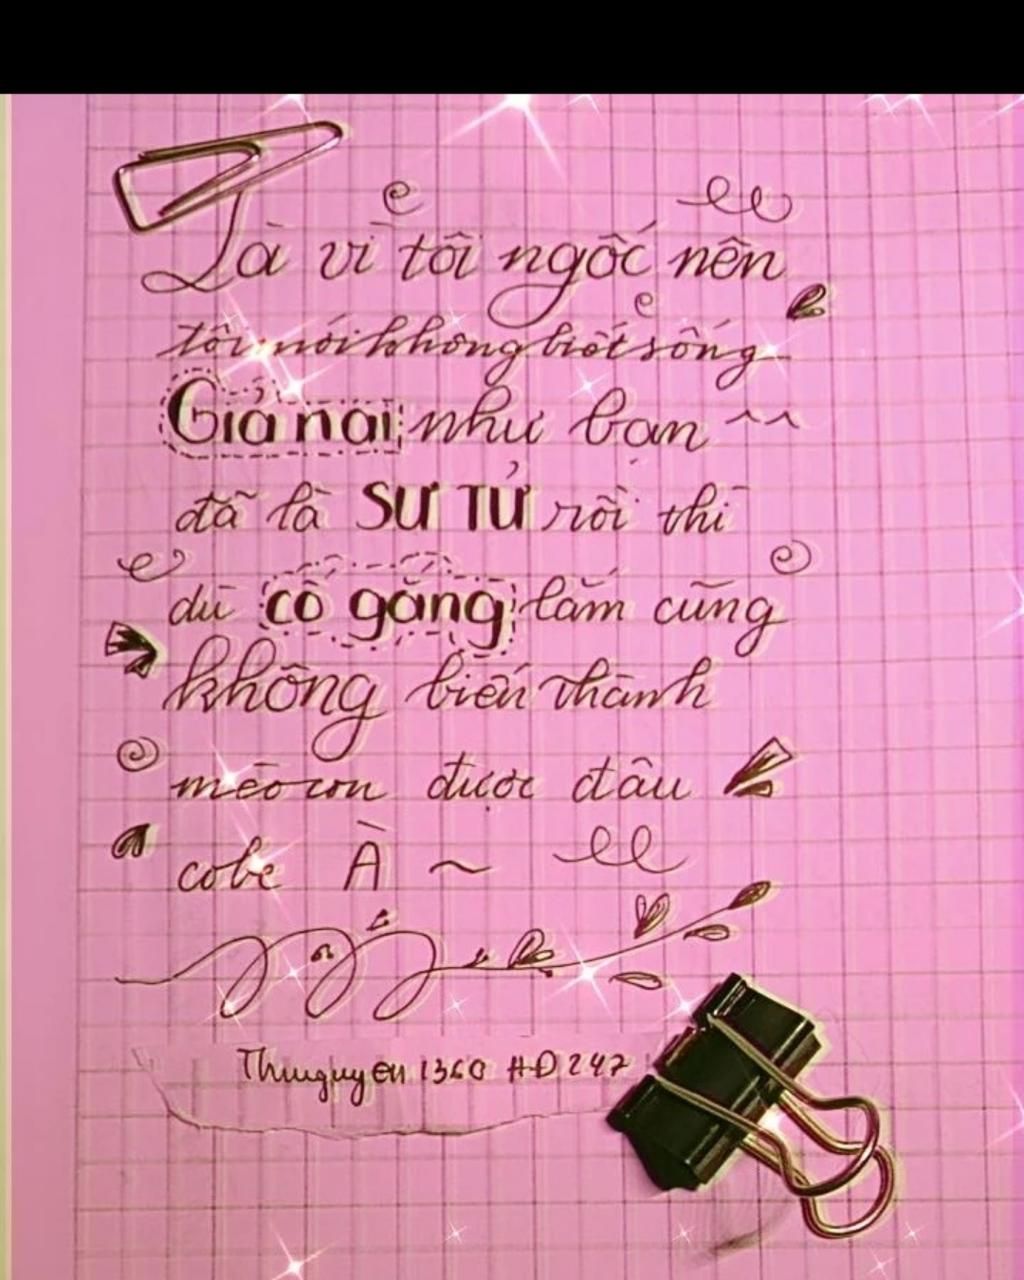 Là vì tôi ngốc nên
tôi mới không biết sống
Giả nai như bạn ^^
đã là SƯ TỬ rồi thì
dù cố gắng lắm cũng
không biến thành
mèo con được đâu
cobe À ~
Thunguyen 1360 HD 247